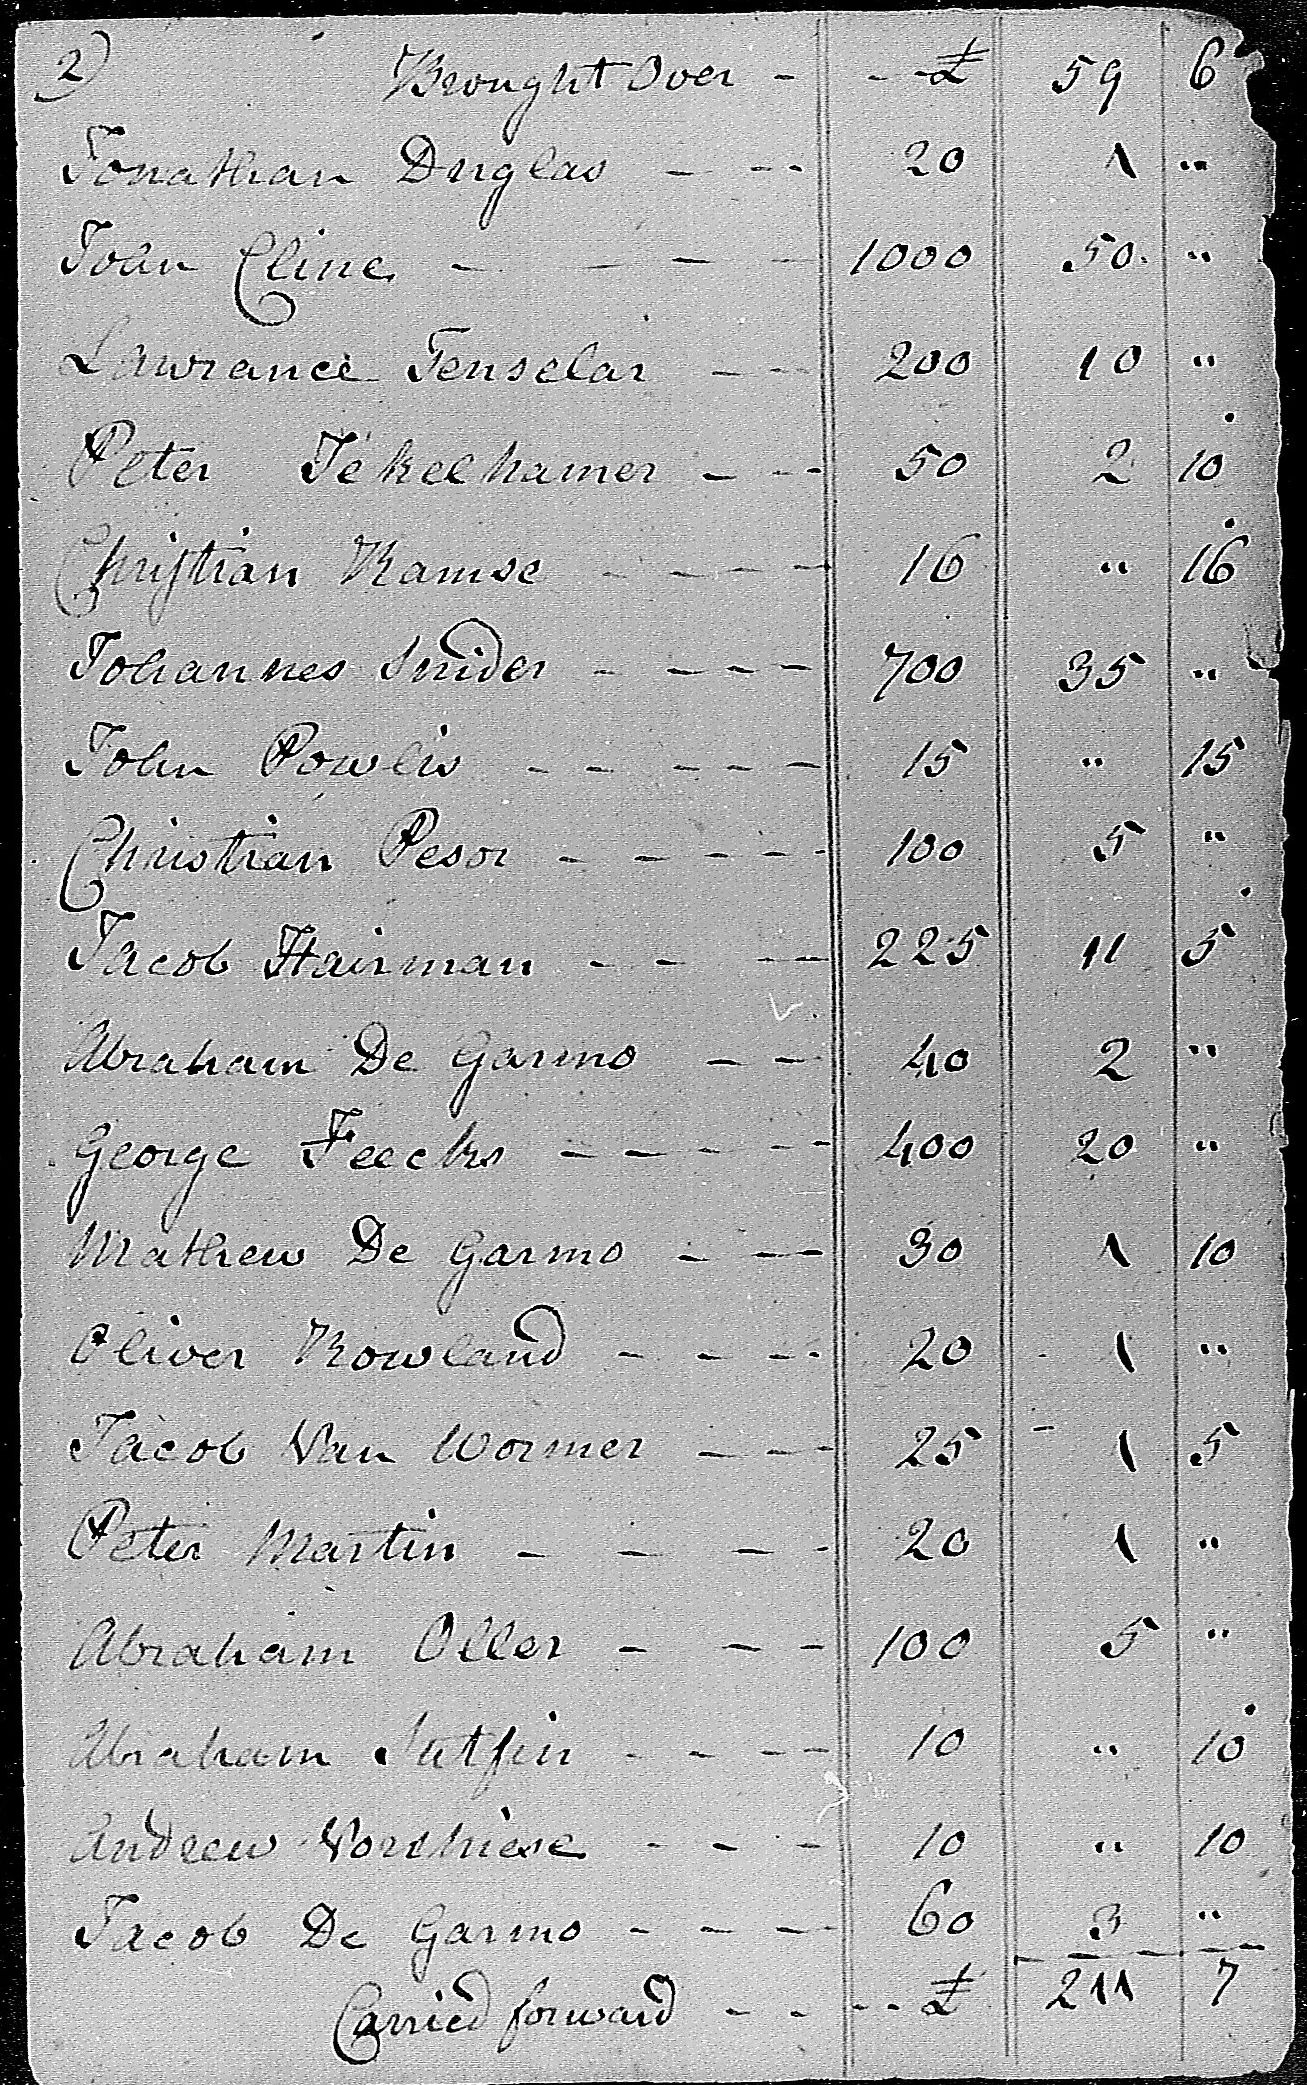 2) Brought Over - - - £ 59 6
Jonathan Duglas - - - 20 1 "
John Cline - - - - 1000 50 "
Lawrance Fenselar - - - 200 10 "
Peter Tekelhamer - - - 50 2 10
Christian Ramse - - - - 16 " 16
Johannes Snider - - - - 700 35 "
John Powlis - - - - - 15 " 15
Christian Pesor - - - - - 100 5 "
Jacob Hairman - - - - 225 11 5
Abraham De Garmo - - - 40 2 "
George Feecks - - - - - 400 20 "
Mathew De Garmo - - - 30 1 10
Oliver Rowland - - - - 20 1 "
Jacob Van Wormer - - - 25 1 5
Peter Martin - - - - 20 1 "
Abraham Oller - - - 100 5 "
Abraham Sutfin - - - - 10 " 10
Andrew Vorshiese - - - 10 " 10
Jacob De Garmo - - - - 60 3 "
Carried forward - - - - £ 211 7